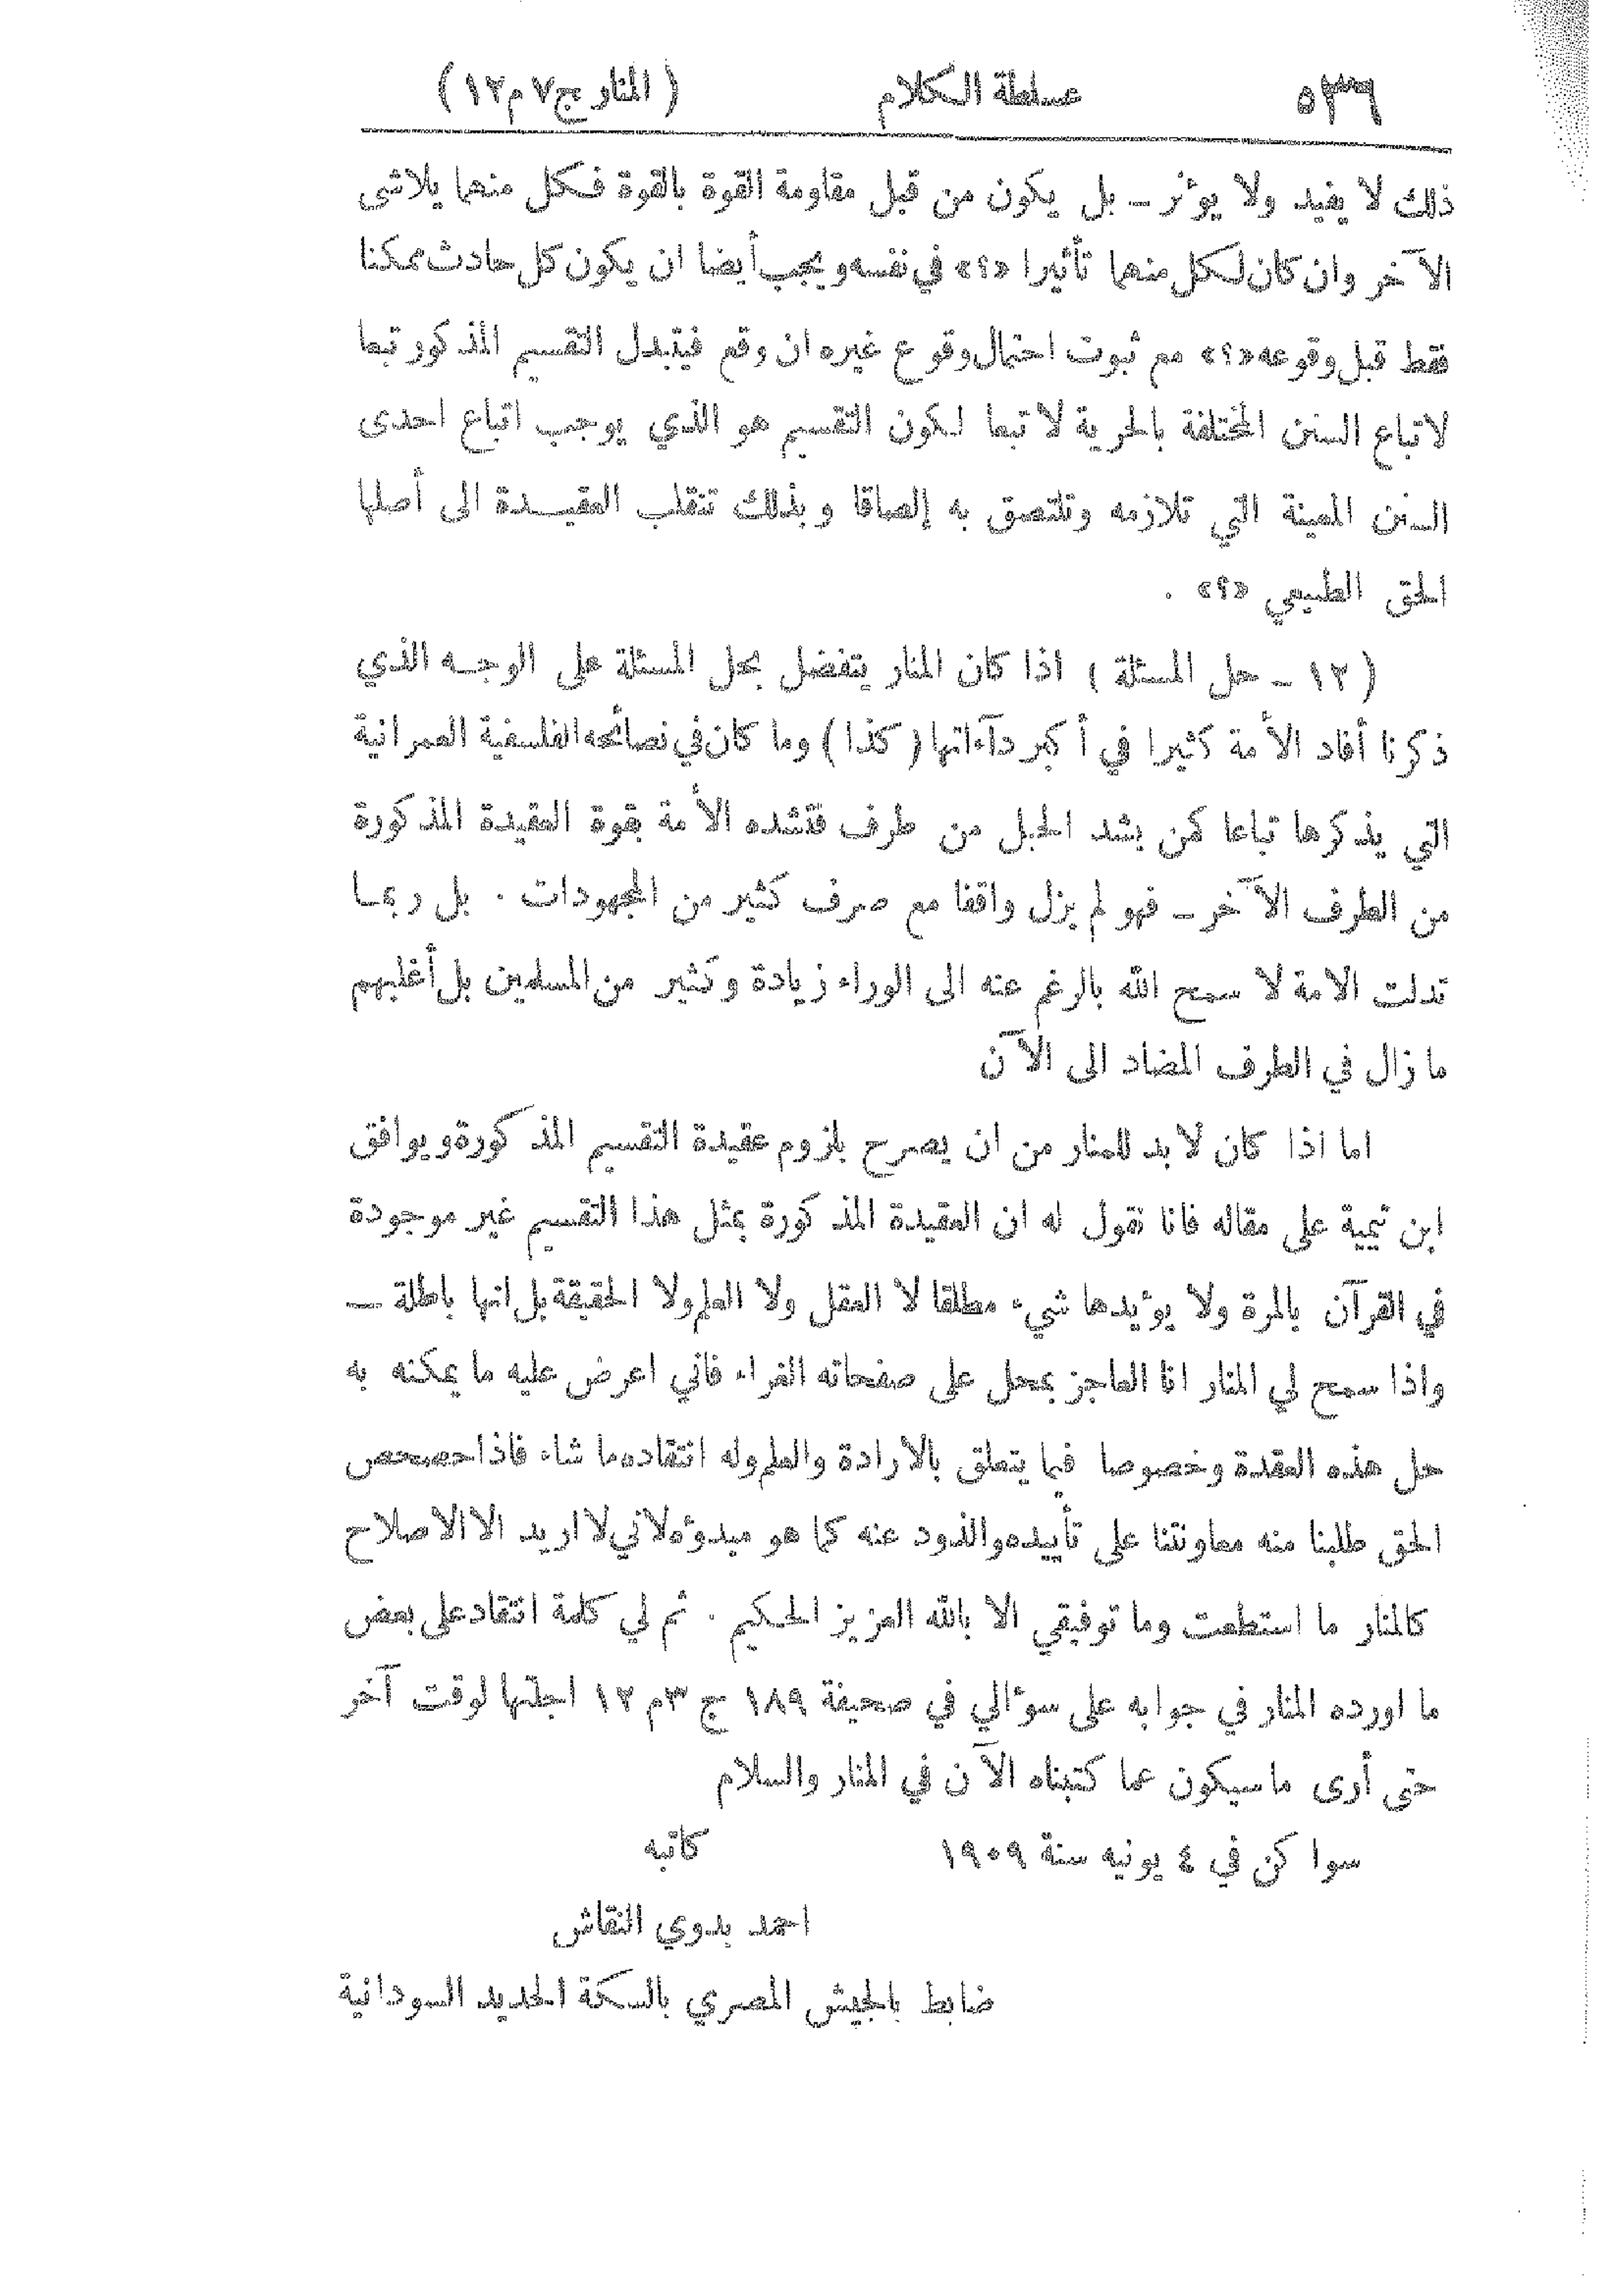 ٥٣٦ عسلطة الكلام ( المنار ج٧ م١٢ )
ذلك لا يفيد ولا يؤثر ــ بل يكون من قبل مقاومة القوة بالقوة فكل منهما يلاشى
الآخر وان كان لكل منهما تأثيرا «؟» في نفسه ويجب أيضا ان يكون كل حادث ممكنا
فقط قبل وقوعه «؟» مع ثبوت احتمال وقوع غيره ان وقع فيتبدل التقسيم المذكور تبعا
لاتباع السنن المختلفة بالحرية لا تبعا لكون التقسيم هو الذي يوجب اتباع احدى
السنن المعينة التي تلازمه وتلتصق به إلصاقا وبذلك تنقلب العقيدة الى أصلها
الحق الطبيعي «؟» .
( ١٢ ــ حل المسئلة ) اذا كان المنار يتفضل بحل المسئلة على الوجه الذي
ذكرنا أفاد الأمة كثيرا في أكبر دآءاتها ( كذا ) وما كان في نصائحه الفلسفية العمرانية
التي يذكرها تباعا كمن يشد الحبل من طرف فتشده الأمة بقوة العقيدة المذكورة
من الطرف الآخر ــ فهو لم يزل واقفا مع صرف كثير من المجهودات . بل ربما
تدلت الامة لا سمح الله بالرغم عنه الى الوراء زيادة وكثير من المسلمين بل أغلبهم
ما زال في الطرف المضاد الى الآن
اما اذا كان لابد للمنار من ان يصرح بلزوم عقيدة التقسيم المذكورة ويوافق
ابن تيمية على مقاله فانا نقول له ان العقيدة المذكورة بمثل هذا التقسيم غير موجودة
في القرآن بالمرة ولا يؤيدها شيء مطلقا لا العقل ولا العلم ولا الحقيقة بل انها باطلة ــ
واذا سمح لي المنار انا العاجز بمحل على صفحاته الغراء فاني اعرض عليه ما يمكنه به
حل هذه العقدة وخصوصا فيما يتعلق بالارادة والعلم وله انتقاده ما شاء فاذا حصحص
الحق طلبنا منه معاونتنا على تأييده والذود عنه كما هو مبدؤه لاني لا اريد الا الاصلاح
كالمنار ما استطعت وما توفيقي الا بالله العزيز الحكيم . ثم لي كلمة انتقاد على بعض
ما اورده المنار في جوابه على سؤالي في صحيفة ١٨٩ ج ٣ م ١٢ اجلتها لوقت آخر
حتى أرى ما سيكون عما كتبناه الآن في المنار والسلام
سواكن في ٤ يونيه سنة ١٩٠٩ كاتبه
احمد بدوي النقاش
ضابط بالجيش المصري بالسكة الحديد السودانية